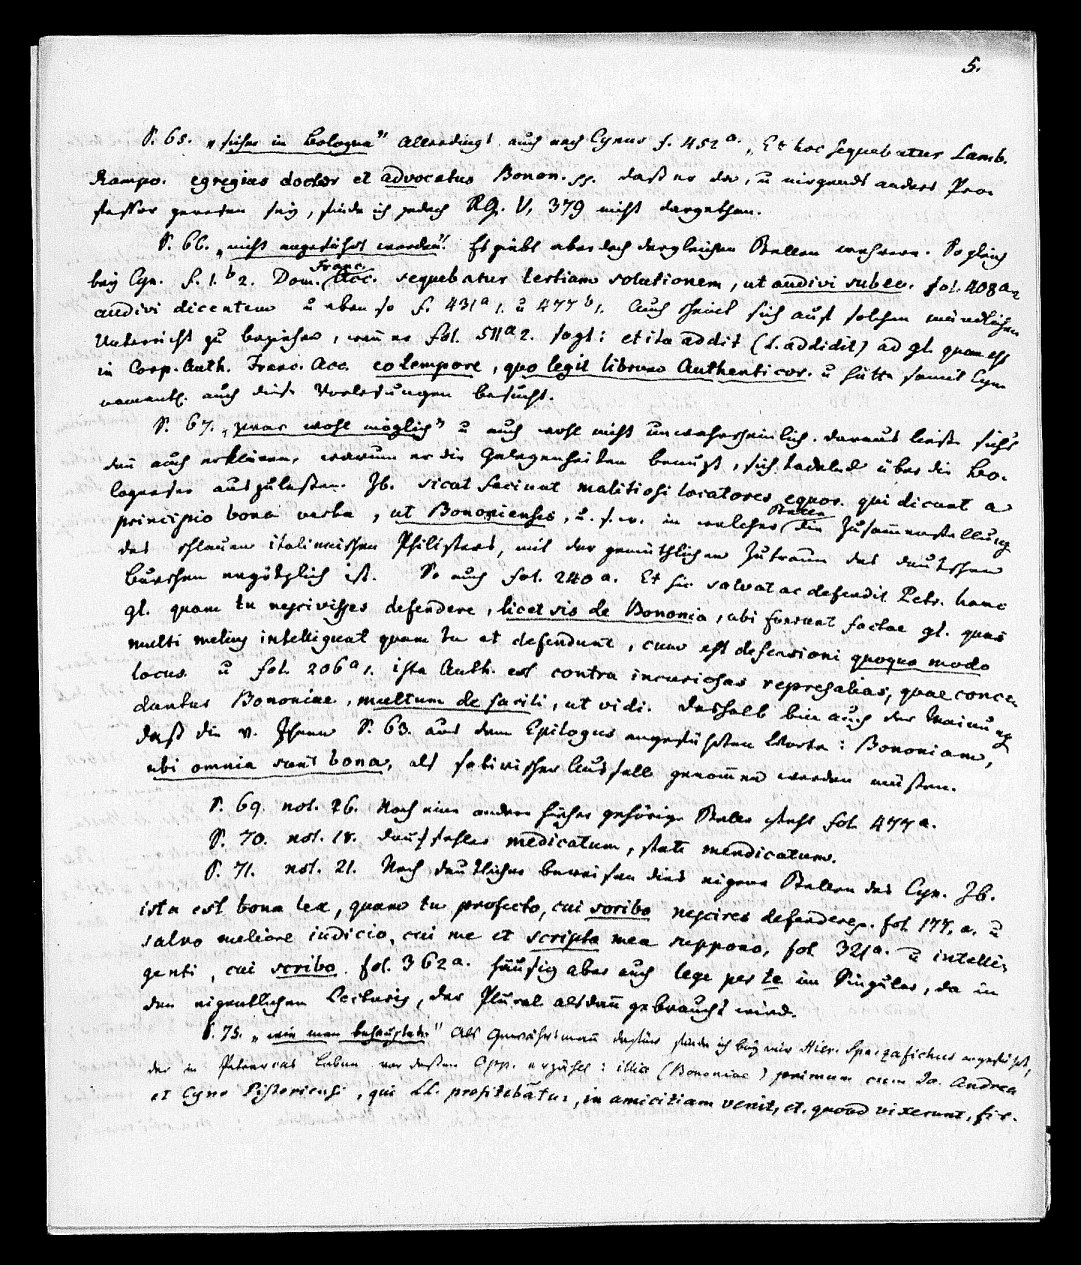 5.
S. 65. „sicher in Bologna" Allerdings auch nach Cynus f. 452 a. „Et hoc sequebatur Lamb.
Rampo. egregius doctor et advocatus Bonon. pp. daß er da, u nirgends anders Pro-
fessor gewesen sey, finde ich jedoch RG. V, 379 nicht dargethan.
S. 66. „nicht angeführt werden". Es giebt aber doch dergleichen Stellen mehrere. So gleich
bey Cyn. f. 1. b 2. Dom. Franc. Acc. sequebatur tertiam solutionem, ut audivi sub eo. fol. 408 a 2
audivi dicentem u eben so f. 431 a 1. u 477 b 1. Auch scheint sich auf solchen mündlichen
Unterricht zu beziehen, wenn er fol. 511 a 2. sagt: et ita addit (l. addidit) ad gl. quam est
in Corp. Auth. Franc. Acc. eo tempore, quo legit librum Authenticor. u hätte somit Cyn
namentl. auch diese Vorlesungen besucht.
S. 67. „zwar wohl möglich" u auch wohl nicht unwahrscheinlich. daraus ließe sich's
denn auch erklären, warum er die Gelegenheiten benutzt, sich tadelnd über die Bo-
logneser auszulassen. Zb. sicut faciunt malitiosi locatores equor. qui dicunt a
principio bona verba, ut Bononienses, u. s. w. in welcher Stelle die Zusammenstellung
des schlauen italienischen Philisters, mit der gemüthlichen Zutraun des deutschen
Burschen ergötzlich ist. So auch fol. 240 a. Et sic salvat ac defendit Petr. hanc
gl. quam tu nescivisses defendere, licet sis de Bononia, ubi fuerunt factae gl. quas
multi melius intelligunt quam tu et defendunt, cum est defensioni quoquo modo
locus. u fol. 206 a 1. ista Auth. est contra incuriosas represalias, quae conce-
duntur Bononiae, multum de facili, ut vidi. Deshalb bin auch der Meinung
daß die v. Ihnen S. 63. aus dem Epilogus angeführten Worte: Bononiam,
ubi omnia sunt bona, als satirischer Ausfall genommen werden müßten.
S. 69. not. 26. Noch eine andere hieher gehörige Stelle steht fol. 477 a.
S. 70. not. 18. Druckfehler medicatum, statt mendicatum.
S. 71. not. 21. Noch deutlicher beweisen dies eigene Stellen des Cyn. Zb.
ista est bona lex, quam tu profecto, cui scribo nescires defendere. fol. 177. a. u
salvo meliore iudicio, cui me et scripta mea suppono, fol. 321 a. u intelli-
genti, cui scribo. fol. 362 a. häufig aber auch lege per te im Singular, da in
den eigentlichen Lecturis, der Plural alsdann gebraucht wird.
S. 73. „wie man behauptete" Als Gewährsmann dafür finde ich bey mir Hier. Squarzafichus angeführt,
der in Petrarcas Leben, vor dessen Opp. erzählt: illic (Bononiae) primum cum Jo. Andrea
et Cyno Pistoriensi, qui LL. profitebatur, in amicitiam venit, et, quoad vixerunt, fir-